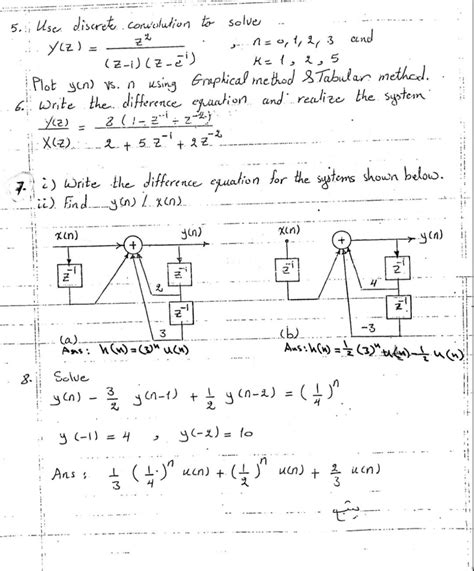 5. Use discrete convolution to solve
Y(z) = z² / (z-1)(z-e⁻¹) , n = 0, 1, 2, 3 and
k = 1, 2, 5
Plot y(n) vs. n using Graphical method & Tabular method.
6. Write the difference equation and realize the system
Y(z) / X(z) = 3(1 - z⁻¹ + z⁻²) / 2 + 5z⁻¹ + 2z⁻²
7. i) Write the difference equation for the systems shown below.
ii) Find y(n) / x(n)
x(n) + y(n) z⁻¹ z⁻¹ 2 z⁻¹ 3
x(n) + y(n) z⁻¹ z⁻¹ 4 z⁻¹ -3
(a) (b)
Ans: h(n) = (3)ⁿ u(n) Ans: h(n) = ½ (3)ⁿ u(n) - ½ u(n)
8. Solve
y(n) - 3/2 y(n-1) + 1/2 y(n-2) = (1/4)ⁿ
y(-1) = 4 , y(-2) = 10
Ans: 1/3 (1/4)ⁿ u(n) + (1/2)ⁿ u(n) + 2/3 u(n)
يتبع